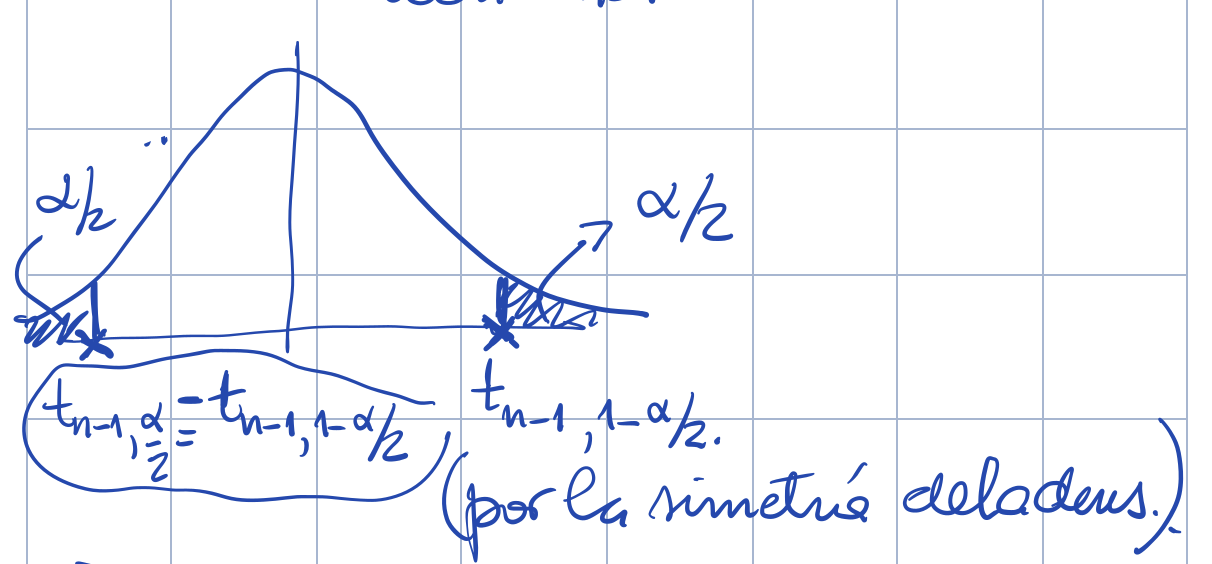 α/2
α/2
t_{n-1, α/2} = -t_{n-1, 1-α/2}
t_{n-1, 1-α/2}.
(por la simetría de la dens.).